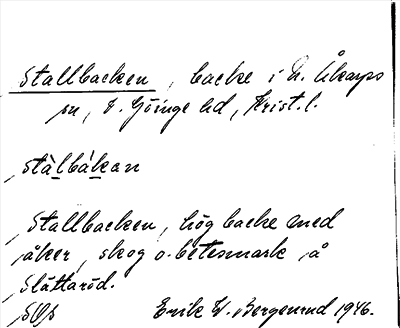 Stallbacken, backe i n. Åkarps
sn, V. Göinge hd, Krist. l.
stàlbákan
Stallbacken, hög backe med
åker, skog o. betesmark å
Slättaröd.
Erik W. Bergenrud 1946.